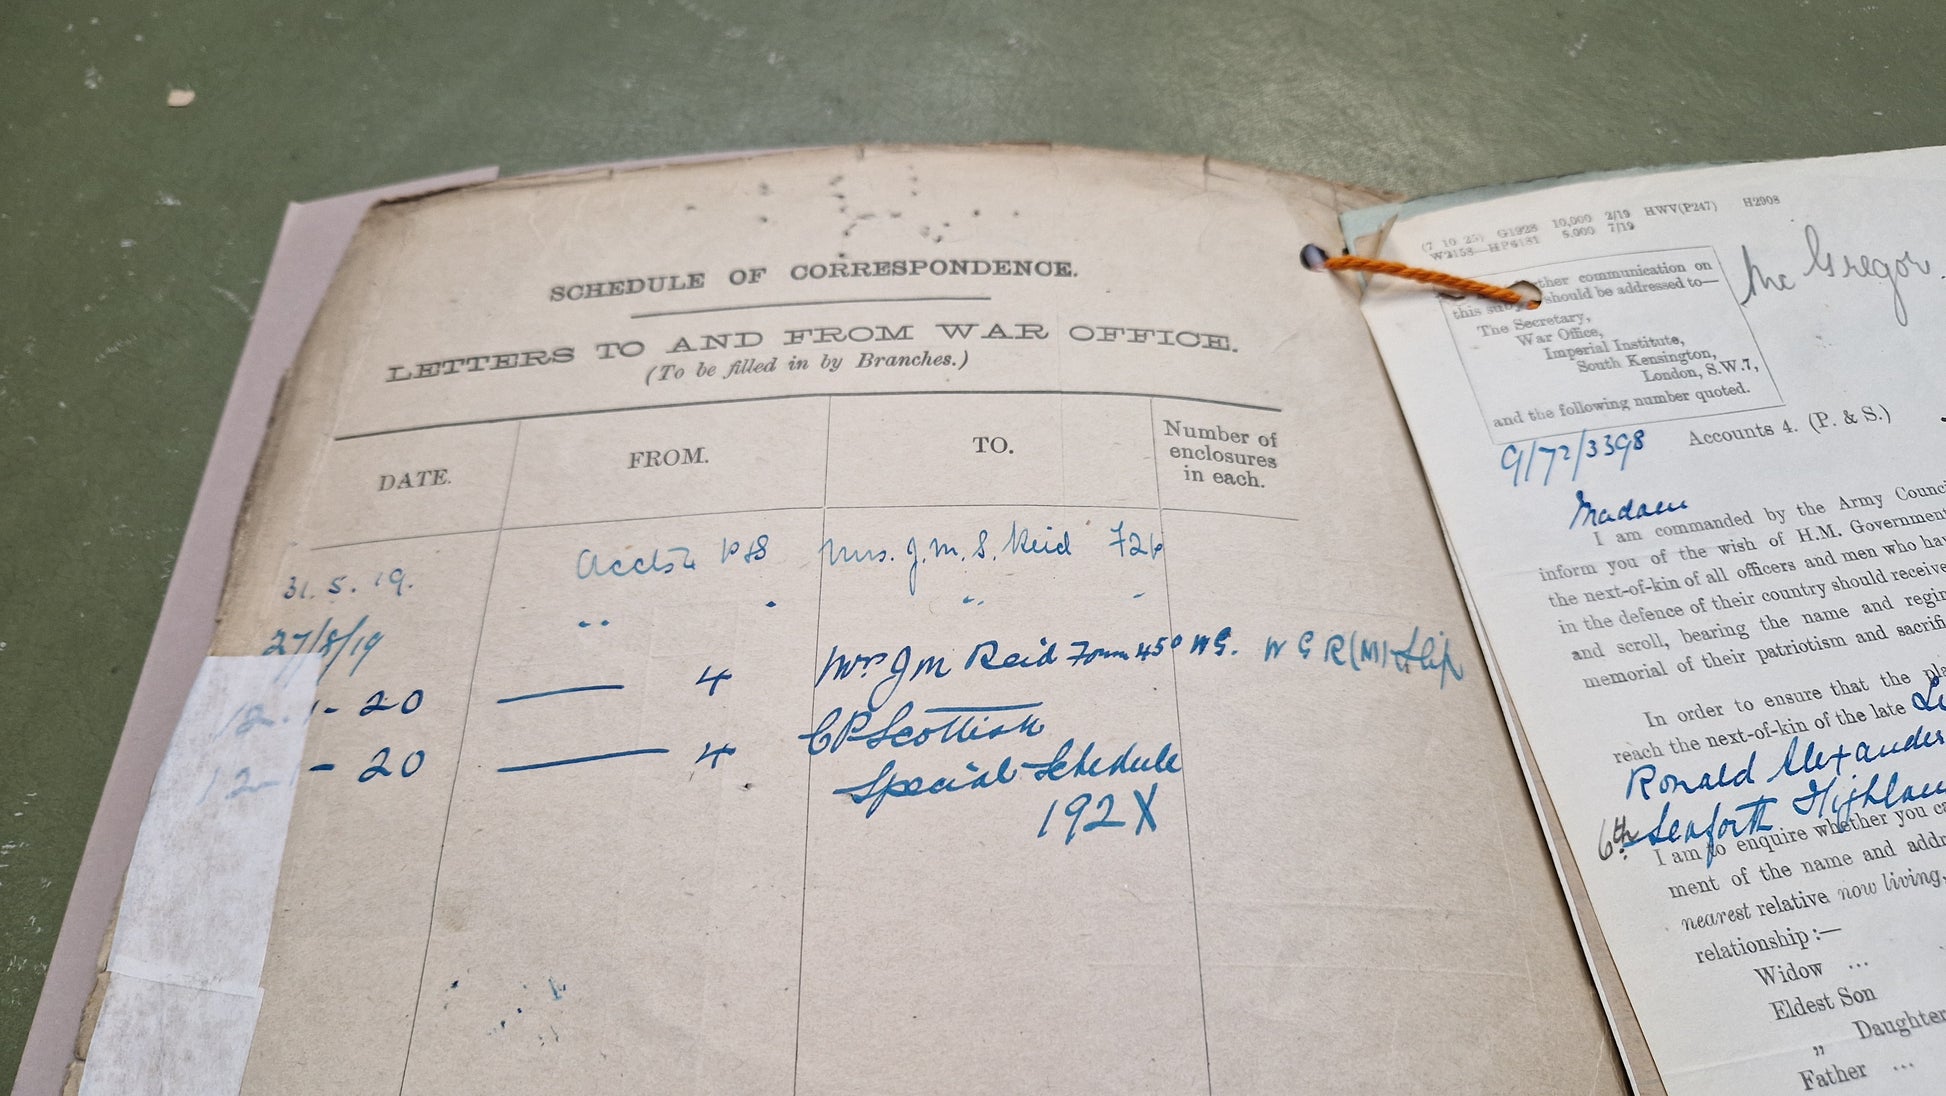 SCHEDULE OF CORRESPONDENCE.
LETTERS TO AND FROM WAR OFFICE.
(To be filled in by Branches.)
DATE. FROM. TO. Number of enclosures in each.
31.5.19. Accts 4 P&S Mrs. J. M. S. Reid 726
27/8/19 " " " "
12-1-20 —— 4 Mrs J M Reid Form 450 W G. W G R (M) Slip
12-1-20 —— 4 CP Scottish
Special Schedule
192X
(7 10 25) G1928 10,000 2/19 HWV(P247) H2908
W2158—HP6181 5,000 7/19
Mc Gregor.
ther communication on
this should be addressed to—
The Secretary,
War Office,
Imperial Institute,
South Kensington,
London, S.W.7,
and the following number quoted.
9/72/3398 Accounts 4. (P. & S.)
Madam
I am commanded by the Army Counci
inform you of the wish of H.M. Government
the next-of-kin of all officers and men who hav
in the defence of their country should receive
and scroll, bearing the name and regim
memorial of their patriotism and sacrifi
In order to ensure that the pla
reach the next-of-kin of the late
Ronald Alexander
6th Seaforth Highlan
I am to enquire whether you ca
ment of the name and addr
nearest relative now living,
relationship :—
Widow ...
Eldest Son
„ Daughter
Father ...